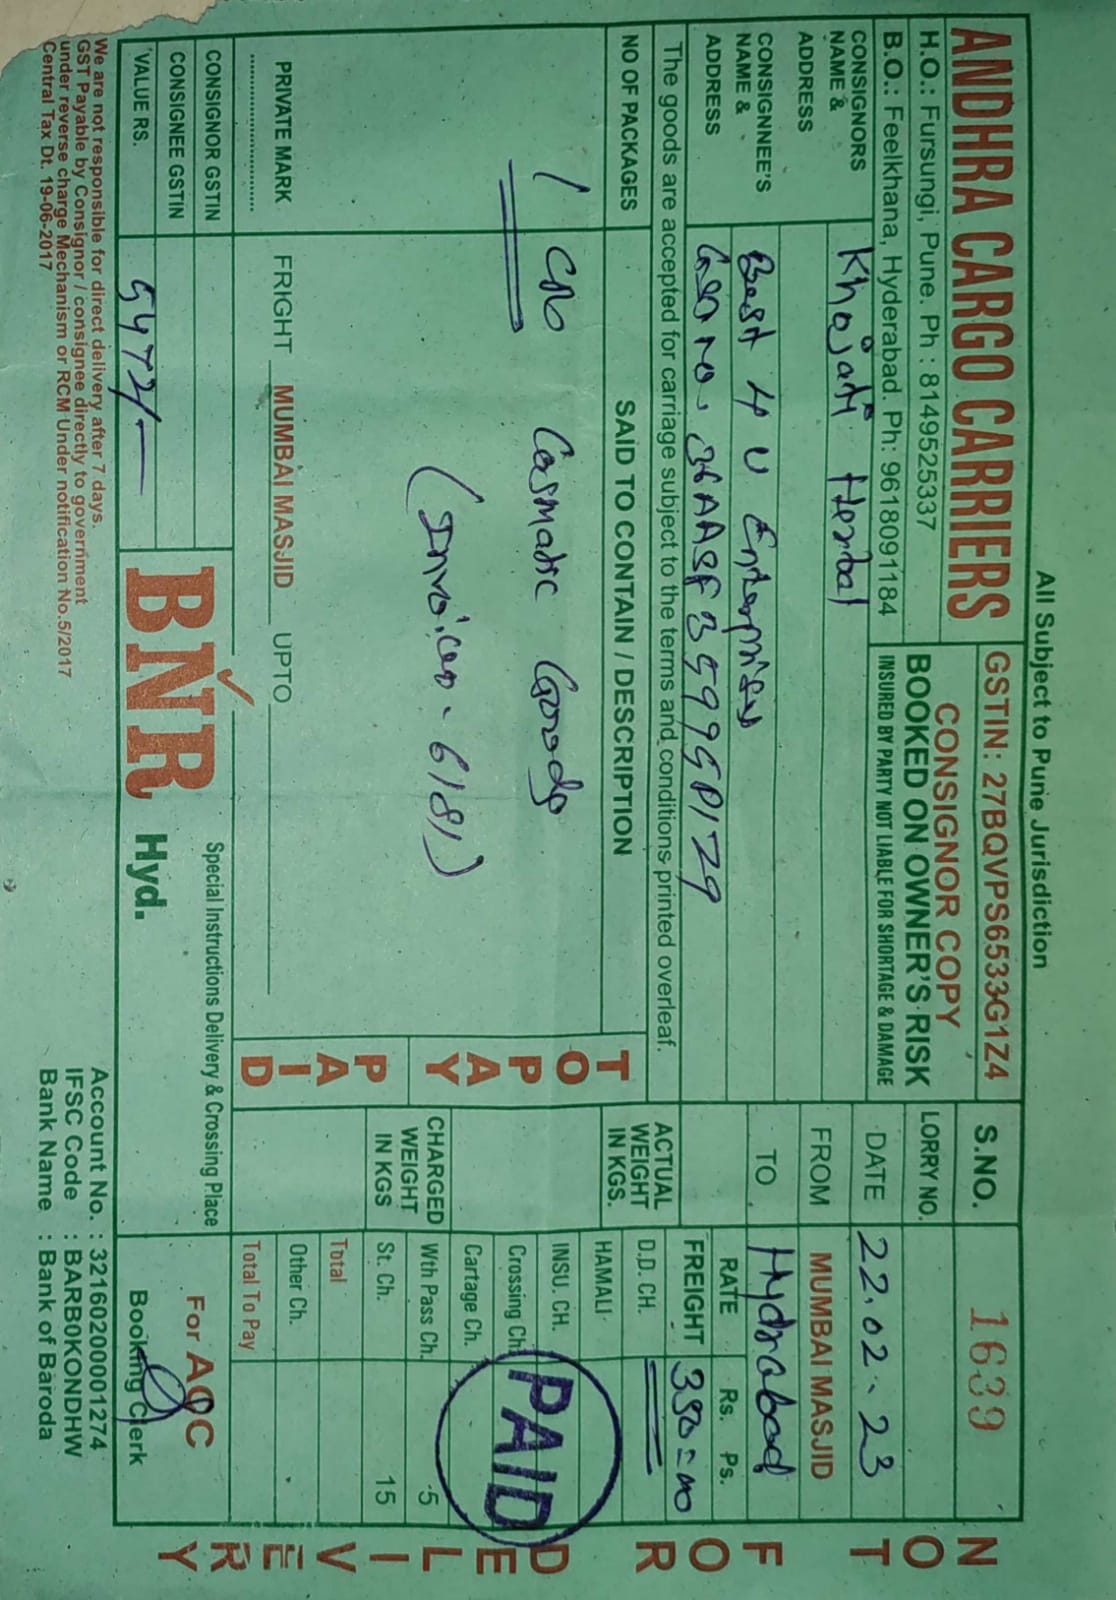 All Subject to Pune Jurisdiction
ANDHRA CARGO CARRIERS
H.O.: Fursungi, Pune. Ph : 8149525337
B.O.: Feelkhana, Hyderabad. Ph: 9618091184
GSTIN: 27BQVPS6533G1Z4
CONSIGNOR COPY
BOOKED ON OWNER'S RISK
INSURED BY PARTY NOT LIABLE FOR SHORTAGE & DAMAGE
S.NO. 1639
LORRY NO.
DATE 22.02.23
FROM MUMBAI MASJID
TO Hydrabad
CONSIGNORS
NAME & Khojati Herbal
ADDRESS
CONSIGNNEE'S
NAME & Best 4 U Enterprises
ADDRESS
The goods are accepted for carriage subject to the terms and conditions printed overleaf.
NO OF PACKAGES
SAID TO CONTAIN / DESCRIPTION
1 Cosmatic Goods
6181)
PRIVATE MARK
FRIGHT MUMBAI MASJID UPTO
TO PAY
PAID
ACTUAL
WEIGHT
IN KGS.
CHARGED
WEIGHT
IN KGS
RATE Rs. Ps.
FREIGHT 350=00
D.D. CH.
HAMALI
INSU. CH.
Crossing Ch.
Cartage Ch.
Wth Pass Ch. -5
St. Ch. 15
Total
Other Ch.
Total To Pay
PAID
CONSIGNOR GSTIN
CONSIGNEE GSTIN
VALUE RS. 5472/-
BNR Hyd.
Special Instructions Delivery & Crossing Place
For ACC
Booking Clerk
NOT FOR DELIVERY
We are not responsible for direct delivery after 7 days.
GST Payable by Consignor / consignee directly to government
under reverse charge Mechanism or RCM Under notification No.5/2017
Central Tax Dt. 19-06-2017
Account No. : 32160200001274
IFSC Code : BARB0KONDHW
Bank Name : Bank of Baroda